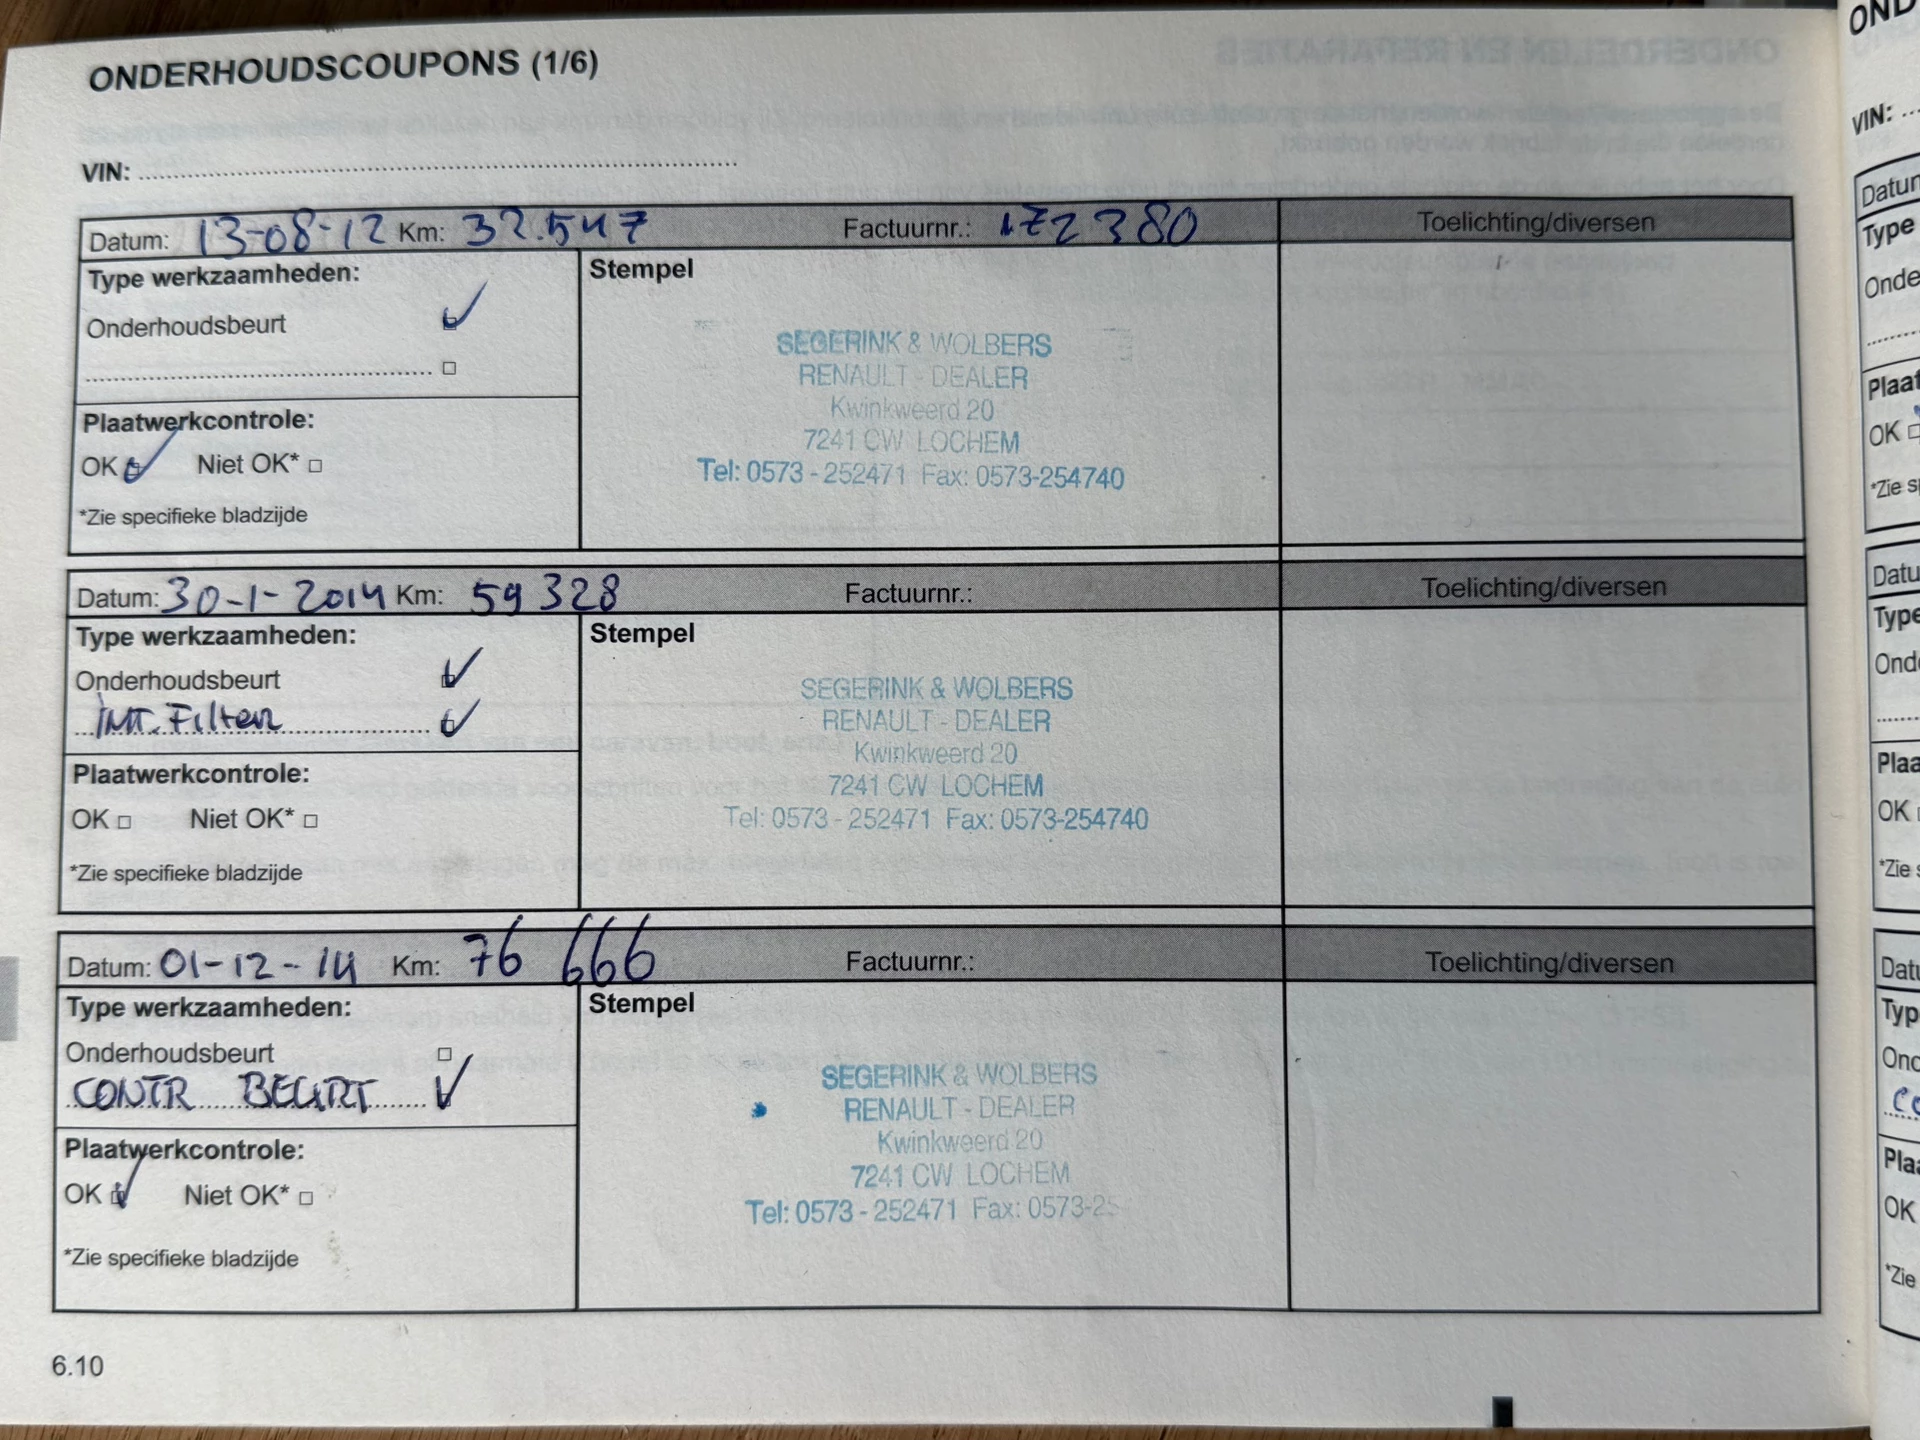 ONDERHOUDSCOUPONS (1/6)
VIN:
Datum: 13-08-12 Km: 32.547 Factuurnr.: 172380 Toelichting/diversen
Type werkzaamheden:
Stempel
Onderhoudsbeurt
Plaatwerkcontrole:
OK Niet OK*
*Zie specifieke bladzijde
SEGERINK & WOLBERS
RENAULT - DEALER
Kwinkweerd 20
7241 CW LOCHEM
Tel: 0573 - 252471 Fax: 0573-254740
Datum: 30-1-2014 Km: 59 328 Factuurnr.: Toelichting/diversen
Type werkzaamheden:
Stempel
Onderhoudsbeurt
INT. Filter
Plaatwerkcontrole:
OK Niet OK*
*Zie specifieke bladzijde
SEGERINK & WOLBERS
RENAULT - DEALER
Kwinkweerd 20
7241 CW LOCHEM
Tel: 0573 - 252471 Fax: 0573-254740
Datum: 01-12-14 Km: 76 666 Factuurnr.: Toelichting/diversen
Type werkzaamheden:
Stempel
Onderhoudsbeurt
CONTR BEURT
Plaatwerkcontrole:
OK Niet OK*
*Zie specifieke bladzijde
SEGERINK & WOLBERS
RENAULT - DEALER
Kwinkweerd 20
7241 CW LOCHEM
Tel: 0573 - 252471 Fax: 0573-25
6.10
VIN:
Type
OK
*Zie
Type
OK
*Zie
OK
*Zie